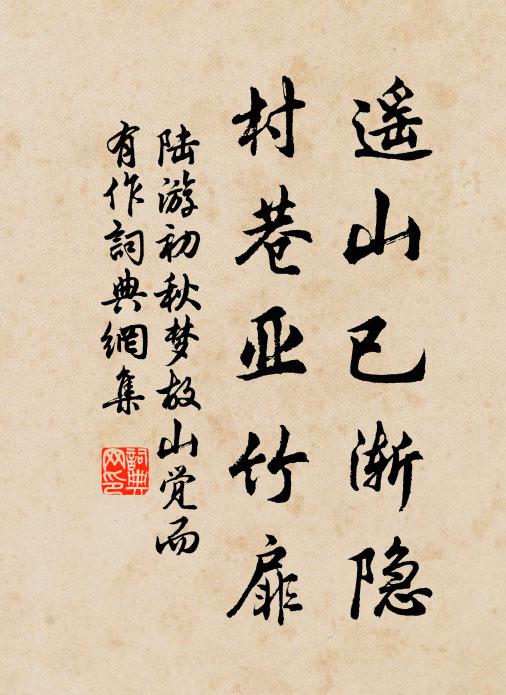 遥山已渐隐
村巷亚竹扉
陆游初秋梦故山觉而
有作詞典網集
詞典网印